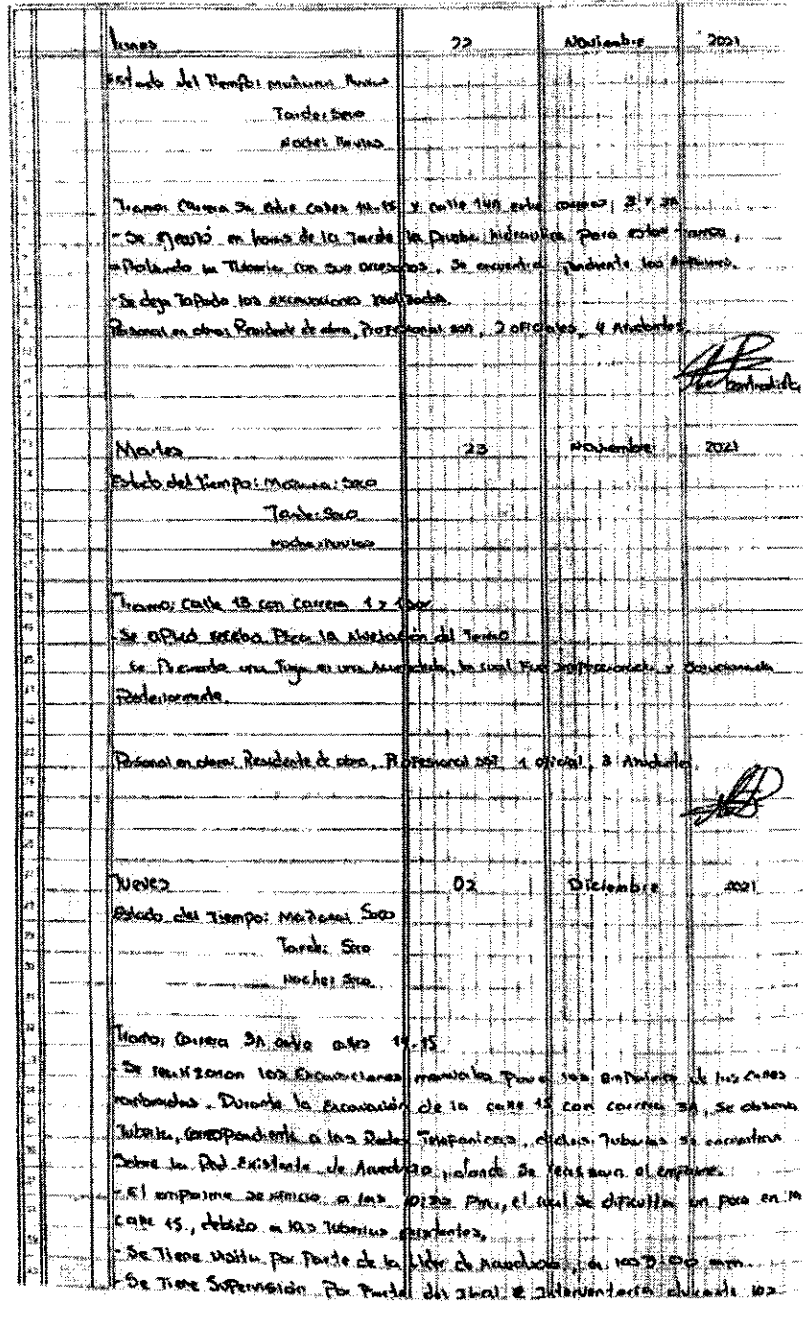 lunes 22 Noviembre 2021
Estado del Tiempo: mañana: lluvias
Tarde: Seco
Noche: lluvias
Tramo: Carrera 3A entre calles 14-15 y calle 14A entre carreras 3 y 3A
- Se ejecutó en horas de la Tarde la Prueba hidraulica para estos tramos,
la Tuberia con sus accesorios, se encuentra pendiente los empalmes.
- Se deja Tapado las excavaciones realizadas.
Personal en obra: Residente de obra, Profesional SST, 2 oficiales, 4 Ayudantes.
contratista
Martes 23 Noviembre 2021
Estado del Tiempo: Mañana: Seco
Tarde: Seco
Noche: lluvias
Tramo: Calle 13 con Carrera 1 y
- Se aplicó recebo Para la Nivelación del
- Se Presenta una Fuga en una la cual Fue y Solucionada
Posteriormente.
Personal en obra: Residente de obra, Profesional SST, 1 oficial, 3 Ayudantes.
Jueves 02 Diciembre 2021
Estado del Tiempo: Mañana: Seco
Tarde: Seco
Noche: Seco
Tramo: Carrera 3A entre calles 14-15
- Se realizaron las Excavaciones manuales para los empalmes de las calles
nombradas. Durante la Excavación de la calle 15 con carrera 3A, se observa
Tuberia, correspondiente a las Redes Telefonicas, dichas Tuberias se encuentran
Sobre la Red Existente de Acueducto, donde se realizara el empalme.
- El empalme se inicio a las pm, el cual se dificulta un poco en la
calle 15, debido a las Tuberias existentes,
- Se Tiene Visita por Parte de la Lider de Acueducto, a las
- Se Tiene Supervisión Por Parte del e Interventoría durante los